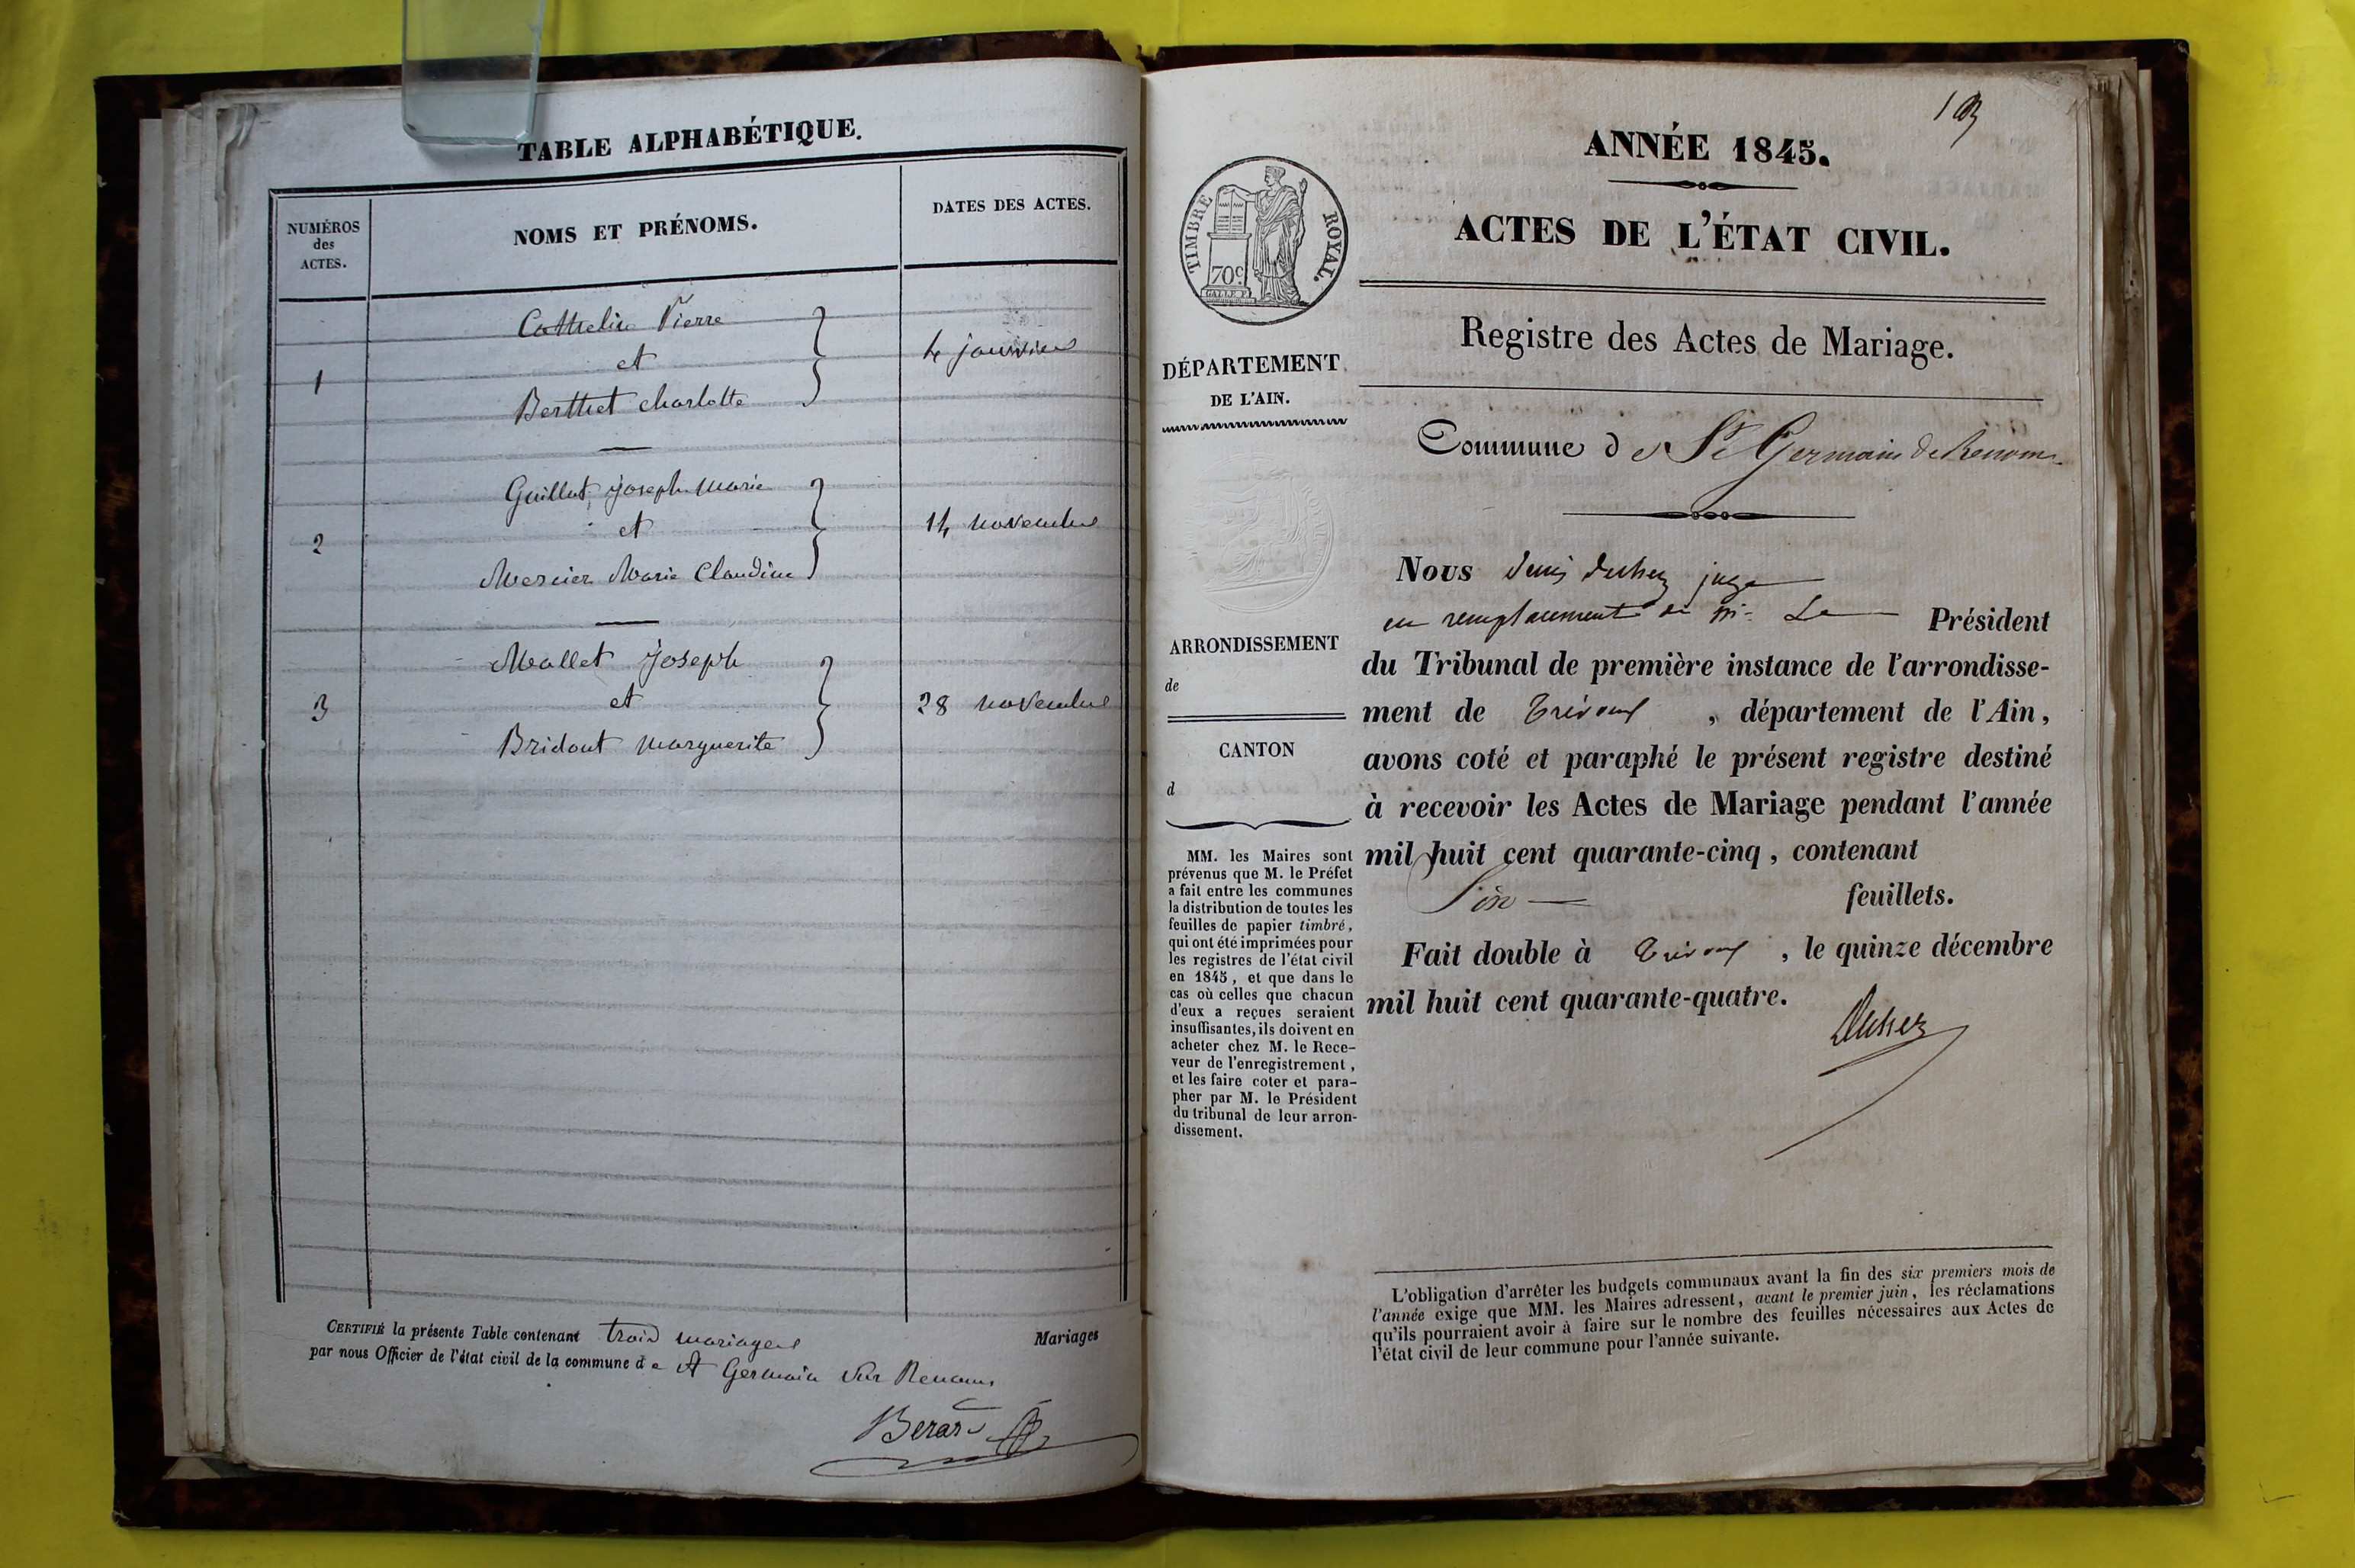 TABLE ALPHABÉTIQUE.
NUMÉROS
des
ACTES.
NOMS ET PRÉNOMS.
DATES DES ACTES.
Cathelin Pierre
1
et
4 janvier
Berthet charlotte
Guillot joseph marie
2
et
14 novembre
Mercier Marie Claudine
Mallet joseph
3
et
28 novembre
Bridont marguerite
CERTIFIÉ la présente Table contenant trois mariages Mariages
par nous Officier de l'état civil de la commune de St Germain sur Renom
Berard
ANNÉE 1845.
ACTES DE L'ÉTAT CIVIL.
TIMBRE ROYAL.
70c
Registre des Actes de Mariage.
DÉPARTEMENT
DE L'AIN.
Commune de St Germain de Renom
Nous denis duchez juge
en remplacement de Mr Le Président
du Tribunal de première instance de l'arrondisse-
ment de Trévoux , département de l'Ain,
avons coté et paraphé le présent registre destiné
à recevoir les Actes de Mariage pendant l'année
mil huit cent quarante-cinq, contenant
Six feuillets.
Fait double à Trévoux , le quinze décembre
mil huit cent quarante-quatre.
ARRONDISSEMENT
de
CANTON
d
MM. les Maires sont
prévenus que M. le Préfet
a fait entre les communes
la distribution de toutes les
feuilles de papier timbré,
qui ont été imprimées pour
les registres de l'état civil
en 1845, et que dans le
cas où celles que chacun
d'eux a reçues seraient
insuffisantes, ils doivent en
acheter chez M. le Rece-
veur de l'enregistrement,
et les faire coter et para-
pher par M. le Président
du tribunal de leur arron-
dissement.
L'obligation d'arrêter les budgets communaux avant la fin des six premiers mois de
l'année exige que MM. les Maires adressent, avant le premier juin, les réclamations
qu'ils pourraient avoir à faire sur le nombre des feuilles nécessaires aux Actes de
l'état civil de leur commune pour l'année suivante.